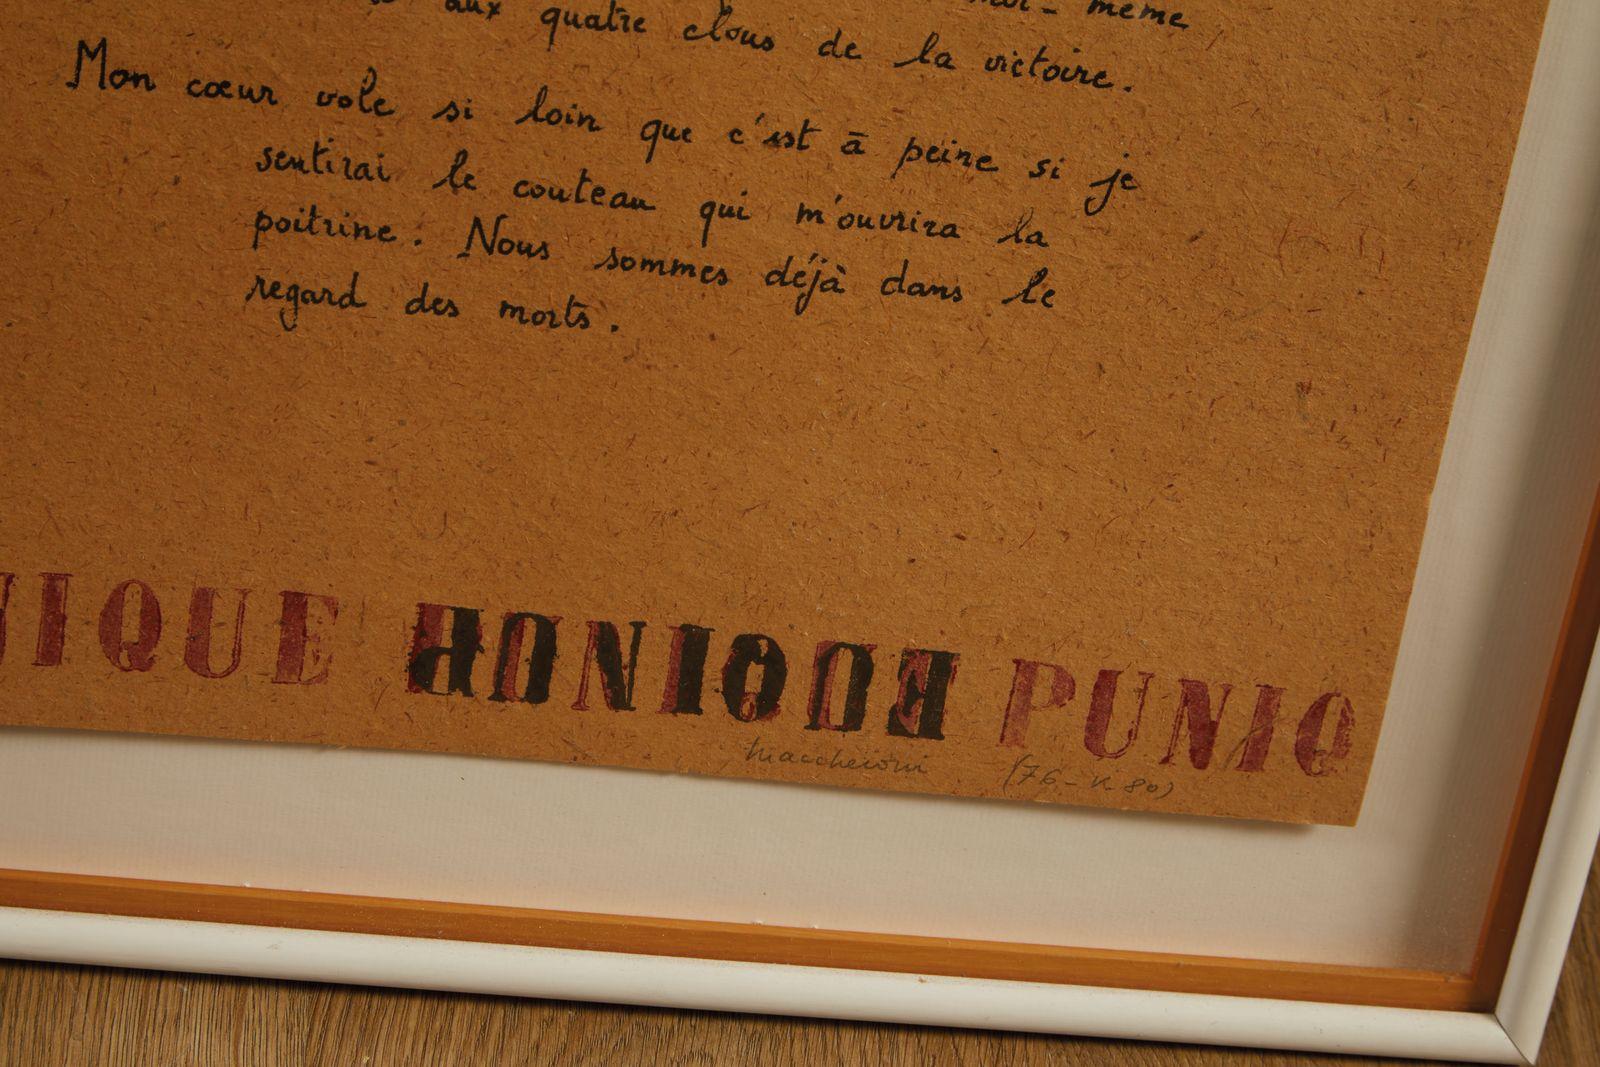 aux quatre clous de la victoire.
moi-même
Mon cœur vole si loin que c'est à peine si je
sentirai le couteau qui m'ouvrira la
poitrine. Nous sommes déjà dans le
regard des morts.
NIQUE PUNIQUE PUNIQ
Maccheroni (76-V.80)